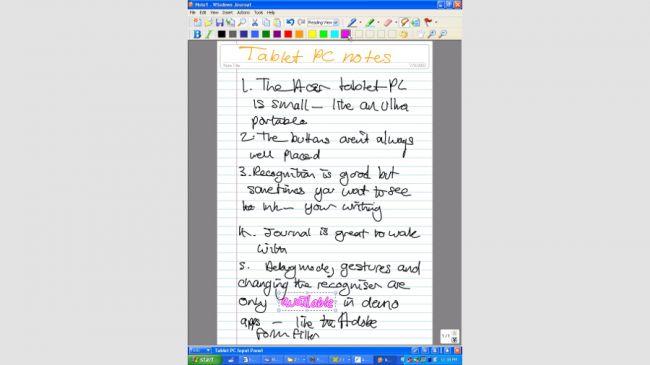 Note1 - Windows Journal
File Edit View Insert Actions Tools Help
Reading View
Tablet PC notes
Note Title
1. The Acer tablet PC
is small - like an ultra
portable
2. The buttons aren't always
well placed
3. Recognition is good but
sometimes you want to see
ink - your writing
4. Journal is great to walk
with
5. Debug mode, gestures and
changing the recogniser are
only available in demo
apps - like the Adobe
form filler
1/1
Tablet PC Input Panel
start